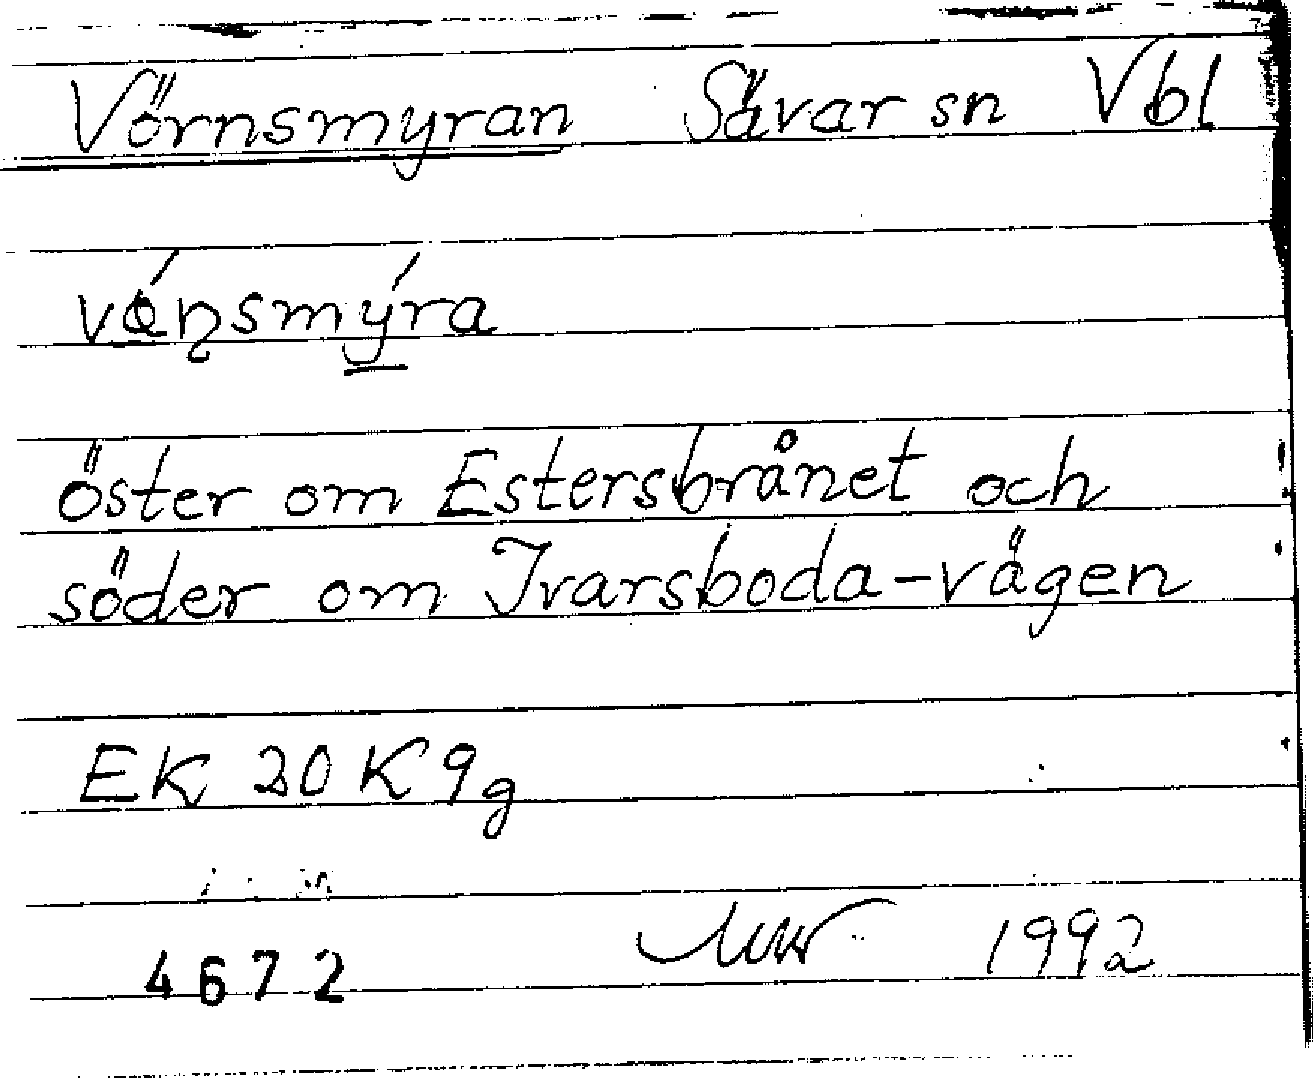 Vörnsmyran Sävar sn Vbl
öster om Estersbrånet och
söder om Ivarsboda-vägen
EK 20 K 9g
1992
4672